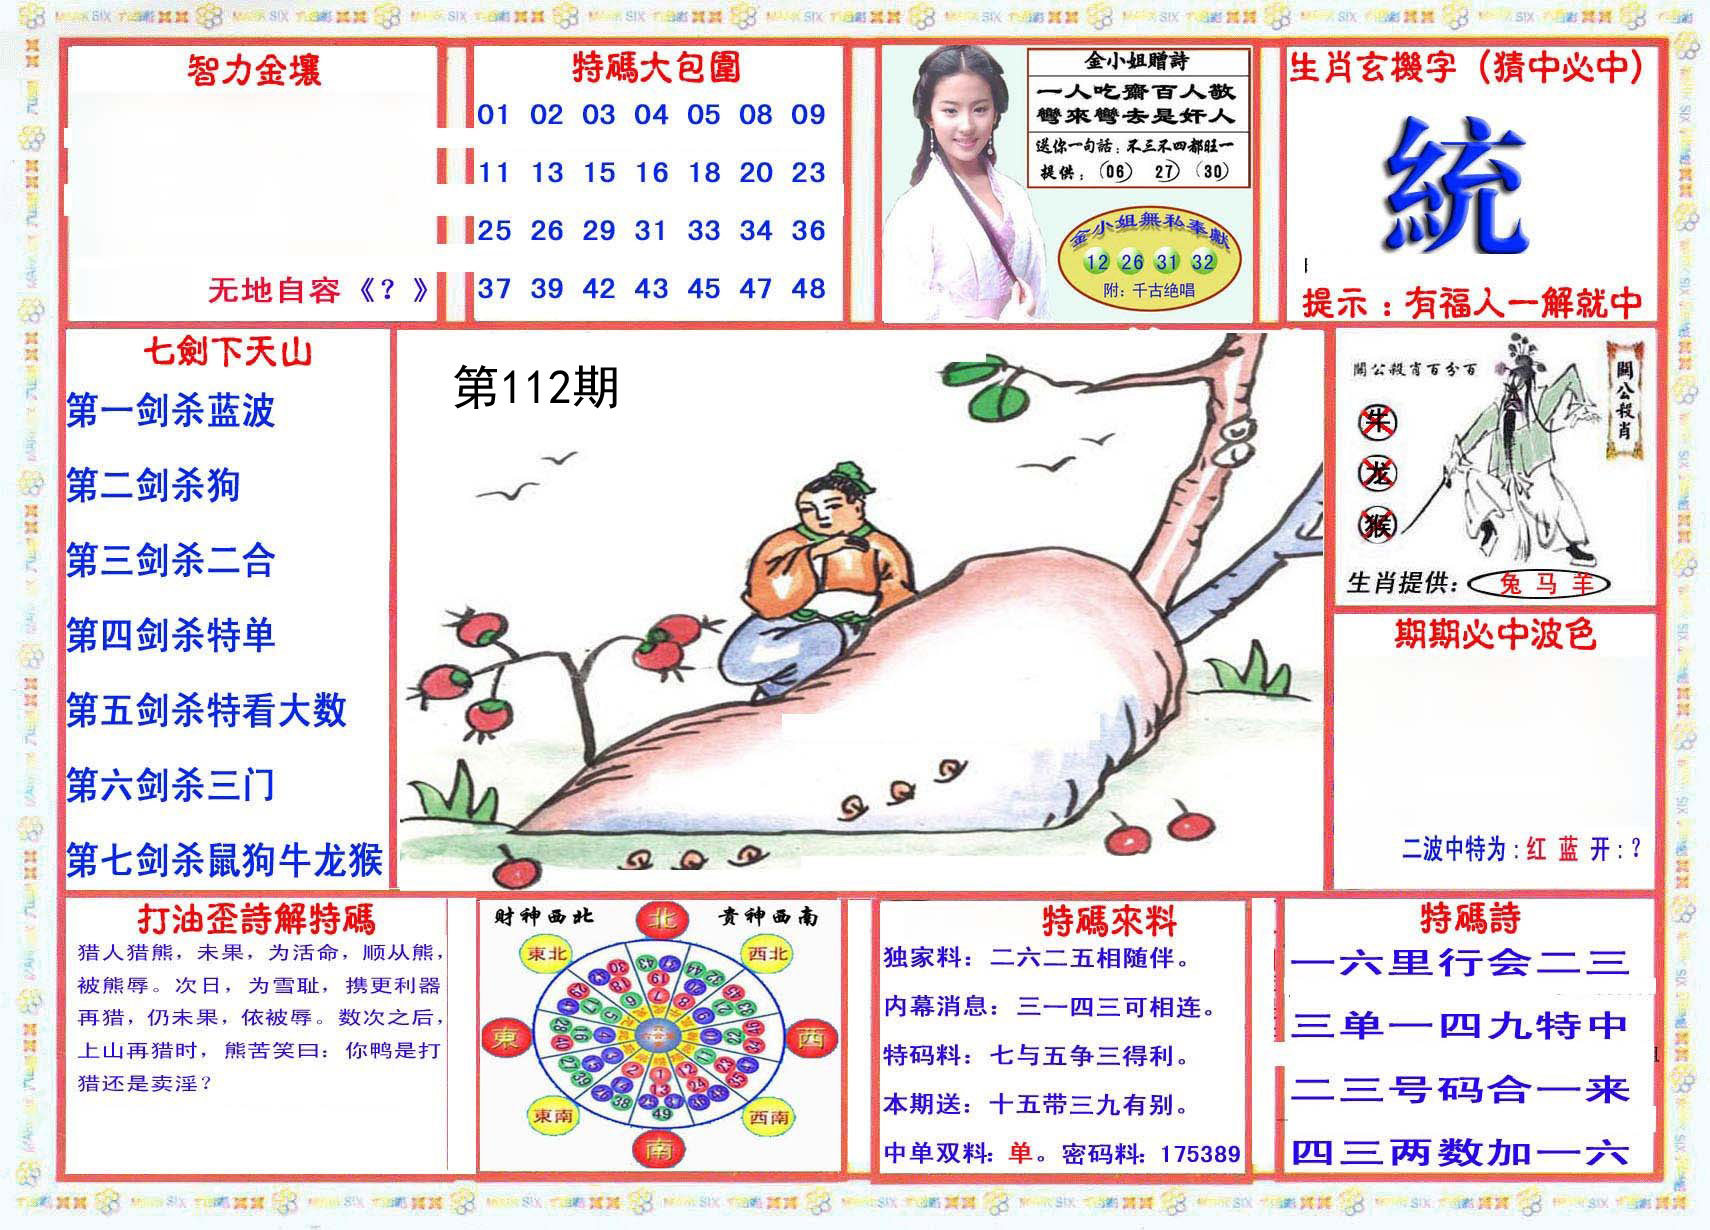 智力金壤
无地自容《？》
特碼大包圍
01 02 03 04 05 08 09
11 13 15 16 18 20 23
25 26 29 31 33 34 36
37 39 42 43 45 47 48
金小姐贈詩
一人吃齋百人敬
彎來彎去是奸人
送你一句話：不三不四都旺一
提供：（06） 27）（30）
金小姐無私奉獻
12 26 31 32
附：千古绝唱
生肖玄機字（猜中必中）
統
提示：有福人一解就中
七劍下天山
第一剑杀蓝波
第二剑杀狗
第三剑杀二合
第四剑杀特单
第五剑杀特看大数
第六剑杀三门
第七剑杀鼠狗牛龙猴
第112期
關公殺肖百分百
關公殺肖
牛
龙
猴
生肖提供：兔 马 羊
期期必中波色
二波中特为：红 蓝 开：？
打油歪詩解特碼
猎人猎熊，未果，为活命，顺从熊，
被熊辱。次日，为雪耻，携更利器
再猎，仍未果，依被辱。数次之后，
上山再猎时，熊苦笑曰：你鸭是打
猎还是卖淫？
财神西北
貴神西南
北
東北
西北
東
西
東南
西南
南
特碼來料
独家料：二六二五相随伴。
内幕消息：三一四三可相连。
特码料：七与五争三得利。
本期送：十五带三九有别。
中单双料：单。密码料：175389
特碼詩
一六里行会二三
三单一四九特中
二三号码合一来
四三两数加一六